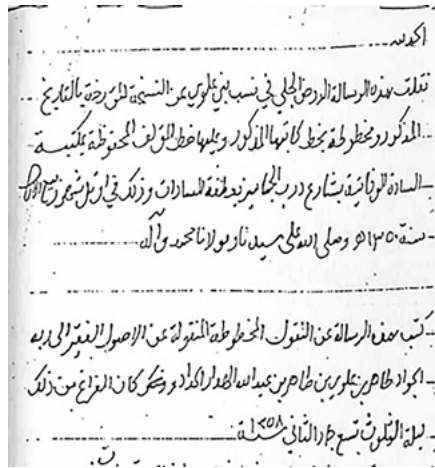 الحمد لله
نقلت هذه الرسالة الروض الجلي في نسب بني علوي عن النسخة المؤرخة بالتاريخ
المذكور ومخطوطة بخط كاتبها المذكور وعليها خط المؤلف المحفوظة بمكتبة
السادة الوفائية بشارع درب الجماميز بعطفة السادات وذلك في أوائل شهر
سنة ١٣٥٠ هـ وصلى الله على سيدنا ومولانا محمد وآله
كتب هذه الرسالة عن النقول المخطوطة المنقولة عن الأصول الفقير إلى ربه
الجواد طاهر بن علوي بن طاهر بن عبد الله الهدار الحداد وكان الفراغ من ذلك
ليلة الثلوث تسع جماد الثاني سنة ١٣٥٨